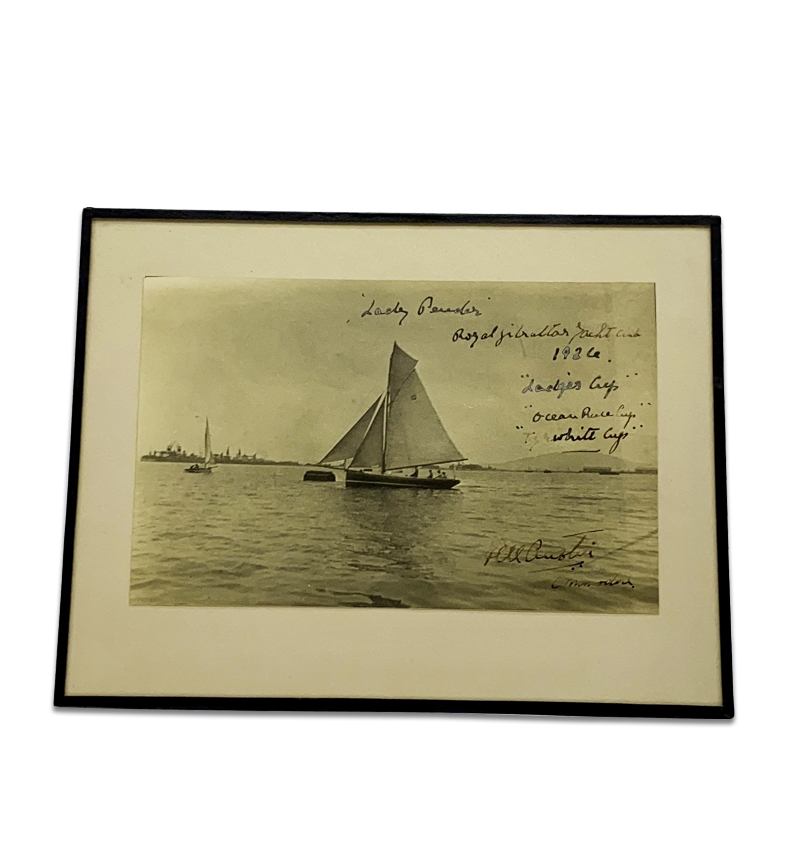 "Lady Pender"
Royal Gibraltar Yacht Club
"Ladies Cup"
"Ocean Race Cup"
White Cup"
Austin
Commodore.